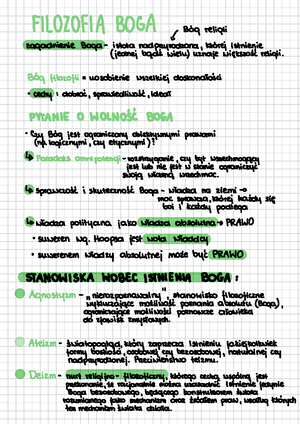 FILOZOFIA BOGA
Bóg religii
zagadnienie Boga - istota nadprzyrodzona, której istnienie
(jednej bądź wielu) uznaje większość religii.
Bóg filozofii = uosobienie wszelkiej doskonałości
• cechy : dobroć, sprawiedliwość, ideał
PYTANIE O WOLNOŚĆ BOGA
• Czy Bóg jest ograniczony obiektywnymi prawami
(np. logicznymi, czy etycznymi)?
Paradoks omnipotencji - rozstrzyganie, czy byt wszechmogący
jest lub nie jest w stanie ograniczyć
swoją własną wszechmoc.
sprawczość i skuteczność Boga - władza na ziemi →
moc sprawcza, której każdy się
boi i każdy podlega
władza polityczna jako władza absolutna → PRAWO
• suweren wg. Hobbsa jest wola władzy
• suwerenem władzy absolutnej może być PRAWO
STANOWISKA WOBEC ISTNIENIA BOGA :
Agnostyzm - „nierozpoznawalny", stanowisko filozoficzne
wykluczające możliwość poznania absolutu (Boga),
ograniczające możliwości poznawcze człowieka
do zjawisk zmysłowych.
Ateizm - światopogląd, który zaprzecza istnieniu jakiejkolwiek
formy boskości, osobowej czy bezosobowej, naturalnej czy
nadprzyrodzonej. Przeciwieństwo teizmu.
Deizm - nurt religijno - filozoficzny, którego cechą wspólną jest
przekonanie, że racjonalnie można uzasadnić istnienie jedynie
Boga bezosobowego, będącego konstruktorem świata
rozumianego jako mechanizm oraz źródłem praw, według których
ten mechanizm świata działa.